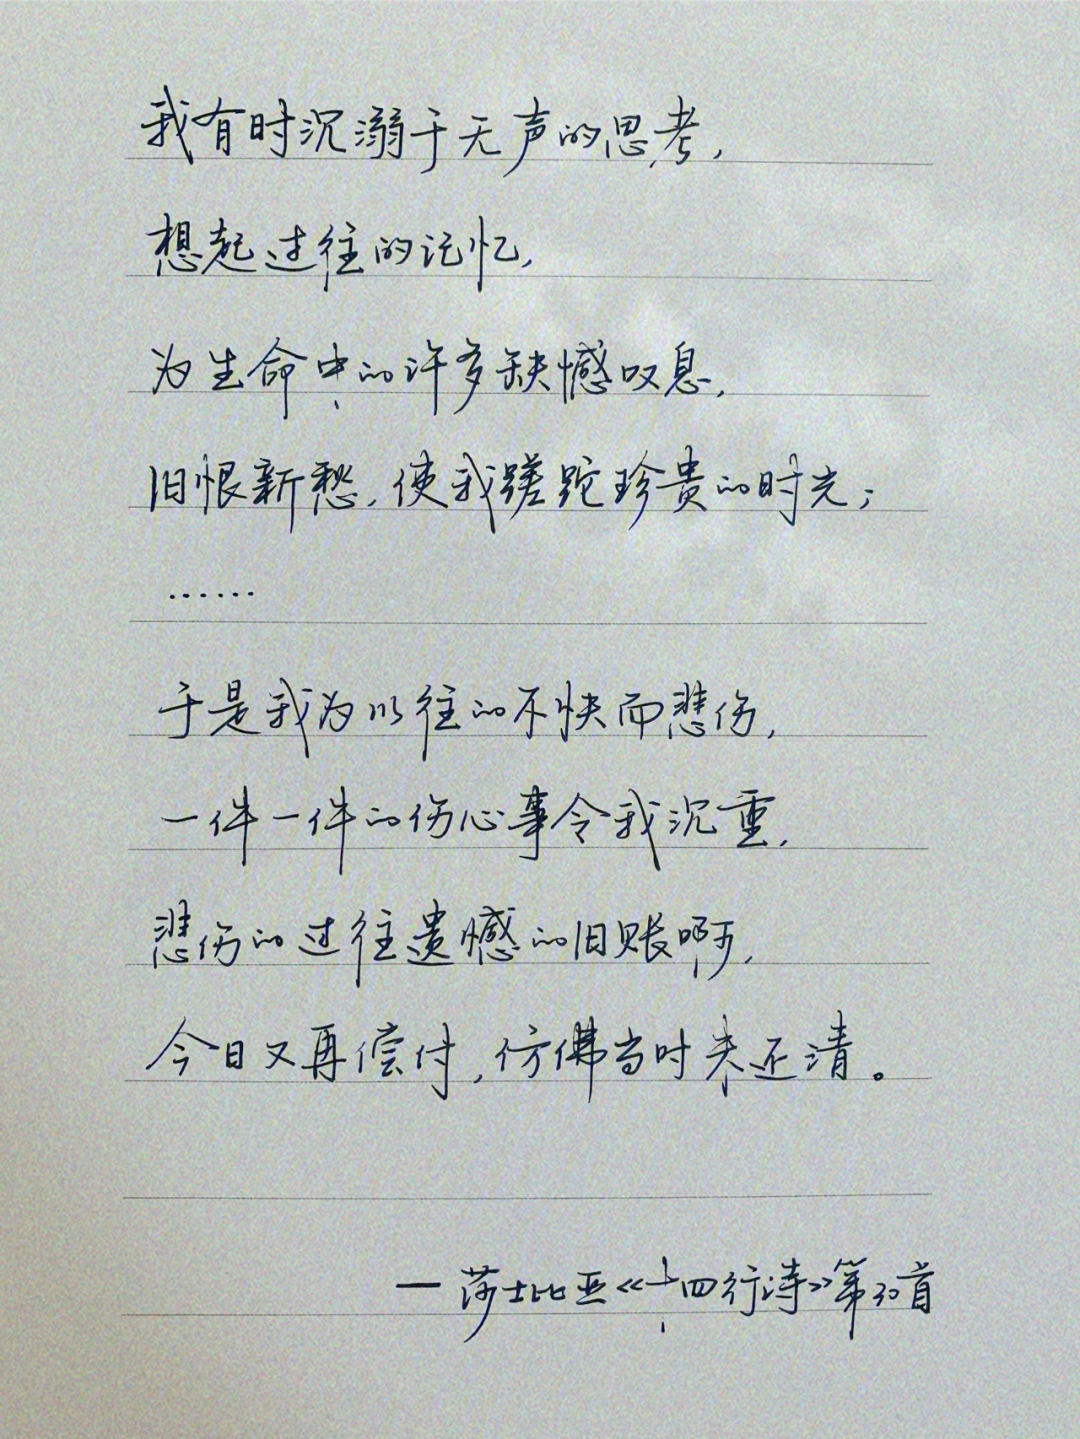 我有时沉溺于无声的思考,
想起过往的记忆,
为生命中的许多缺憾叹息,
旧恨新愁,使我蹉跎珍贵的时光;
······
于是我为以往的不快而悲伤,
一件一件的伤心事令我沉重,
悲伤的过往遗憾的旧账啊,
今日又再偿付,仿佛当时未还清。
—莎士比亚《十四行诗》第30首